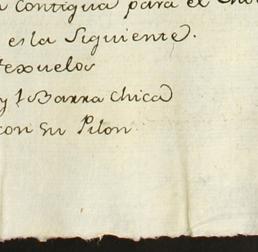 contigua para el
es la Siguiente.
texuelos
y 1 Barra chica
con su Pilon